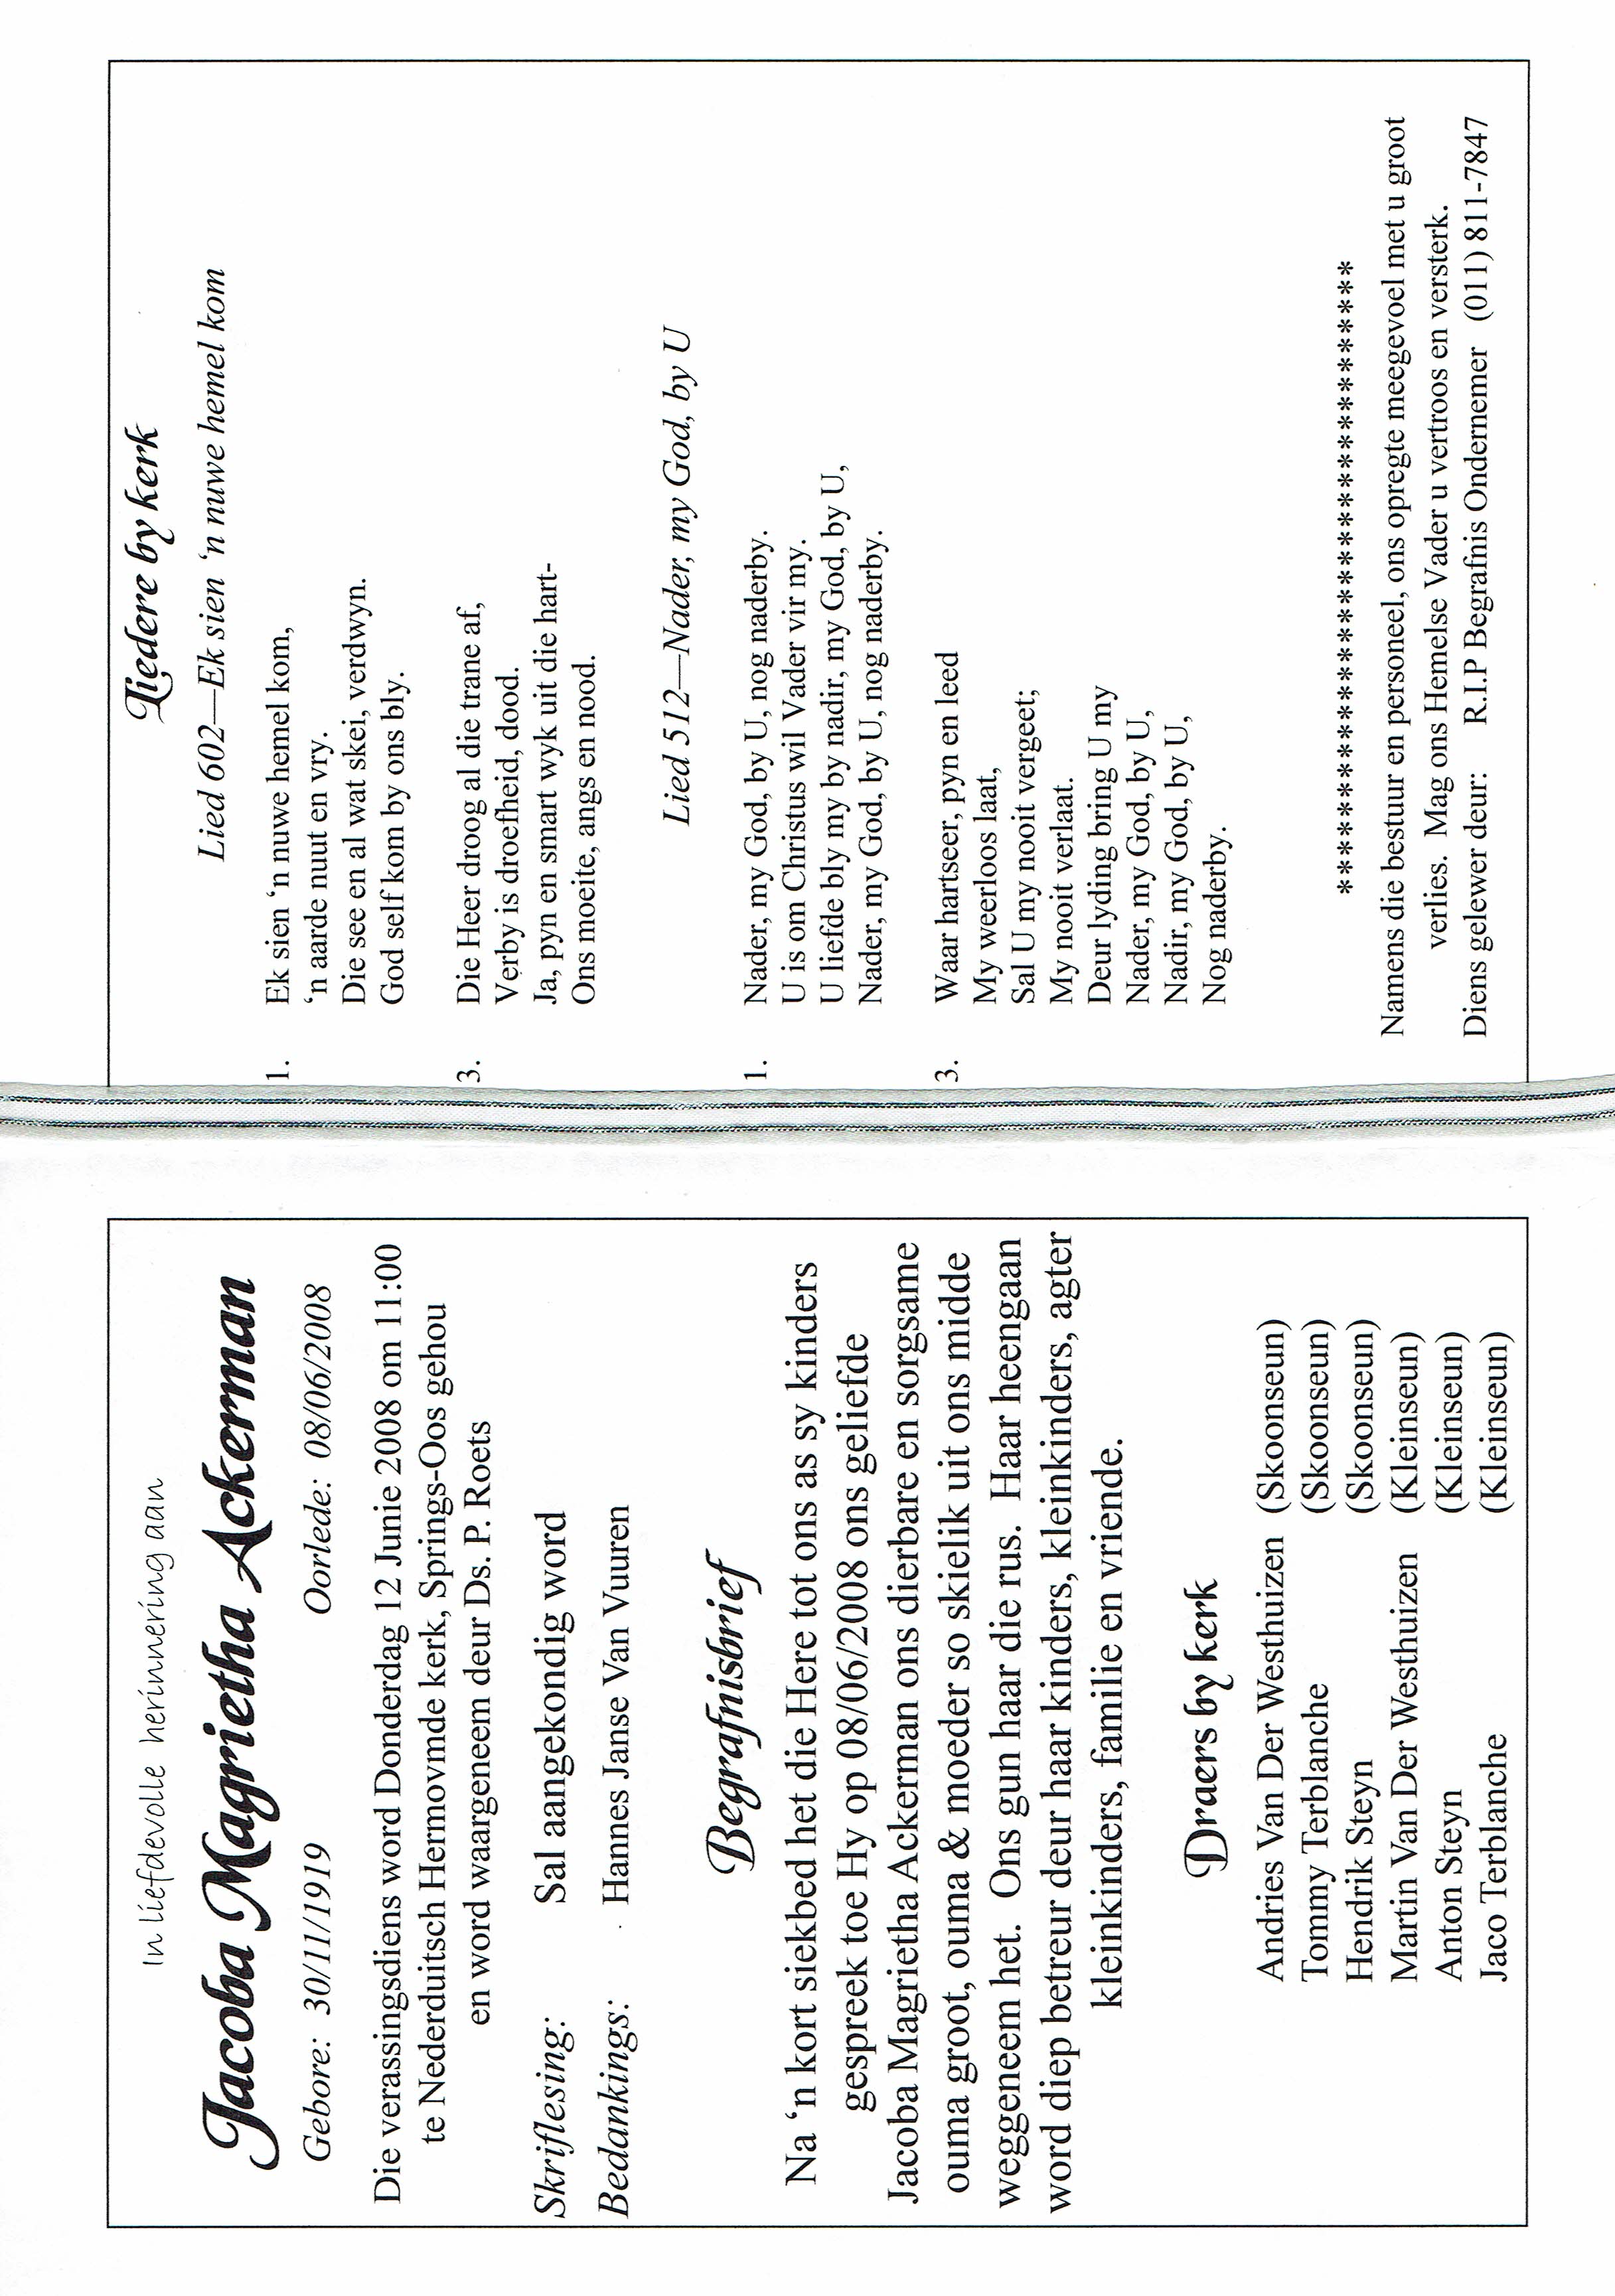 In liefdevolle herinnering aan
Jacoba Magrietha Ackerman
Gebore: 30/11/1919 Oorlede: 08/06/2008
Die verassingsdiens word Donderdag 12 Junie 2008 om 11:00
te Nederduitsch Hermovmde kerk, Springs-Oos gehou
en word waargeneem deur Ds. P. Roets
Skriflesing: Sal aangekondig word
Bedankings: Hannes Janse Van Vuuren
Begrafnisbrief
Na ‘n kort siekbed het die Here tot ons as sy kinders
gespreek toe Hy op 08/06/2008 ons geliefde
Jacoba Magrietha Ackerman ons dierbare en sorgsame
ouma groot, ouma & moeder so skielik uit ons midde
weggeneem het. Ons gun haar die rus. Haar heengaan
word diep betreur deur haar kinders, kleinkinders, agter
kleinkinders, familie en vriende.
Draers by kerk
Andries Van Der Westhuizen (Skoonseun)
Tommy Terblanche (Skoonseun)
Hendrik Steyn (Skoonseun)
Martin Van Der Westhuizen (Kleinseun)
Anton Steyn (Kleinseun)
Jaco Terblanche (Kleinseun)
Liedere by kerk
Lied 602—Ek sien ‘n nuwe hemel kom
1. Ek sien ‘n nuwe hemel kom,
‘n aarde nuut en vry.
Die see en al wat skei, verdwyn.
God self kom by ons bly.
3. Die Heer droog al die trane af,
Verby is droefheid, dood.
Ja, pyn en smart wyk uit die hart-
Ons moeite, angs en nood.
Lied 512—Nader, my God, by U
1. Nader, my God, by U, nog naderby.
U is om Christus wil Vader vir my.
U liefde bly my by nadir, my God, by U,
Nader, my God, by U, nog naderby.
3. Waar hartseer, pyn en leed
My weerloos laat,
Sal U my nooit vergeet;
My nooit verlaat.
Deur lyding bring U my
Nader, my God, by U,
Nadir, my God, by U,
Nog naderby.
**********************************
Namens die bestuur en personeel, ons opregte meegevoel met u groot
verlies. Mag ons Hemelse Vader u vertroos en versterk.
Diens gelewer deur: R.I.P Begrafnis Ondernemer (011) 811-7847